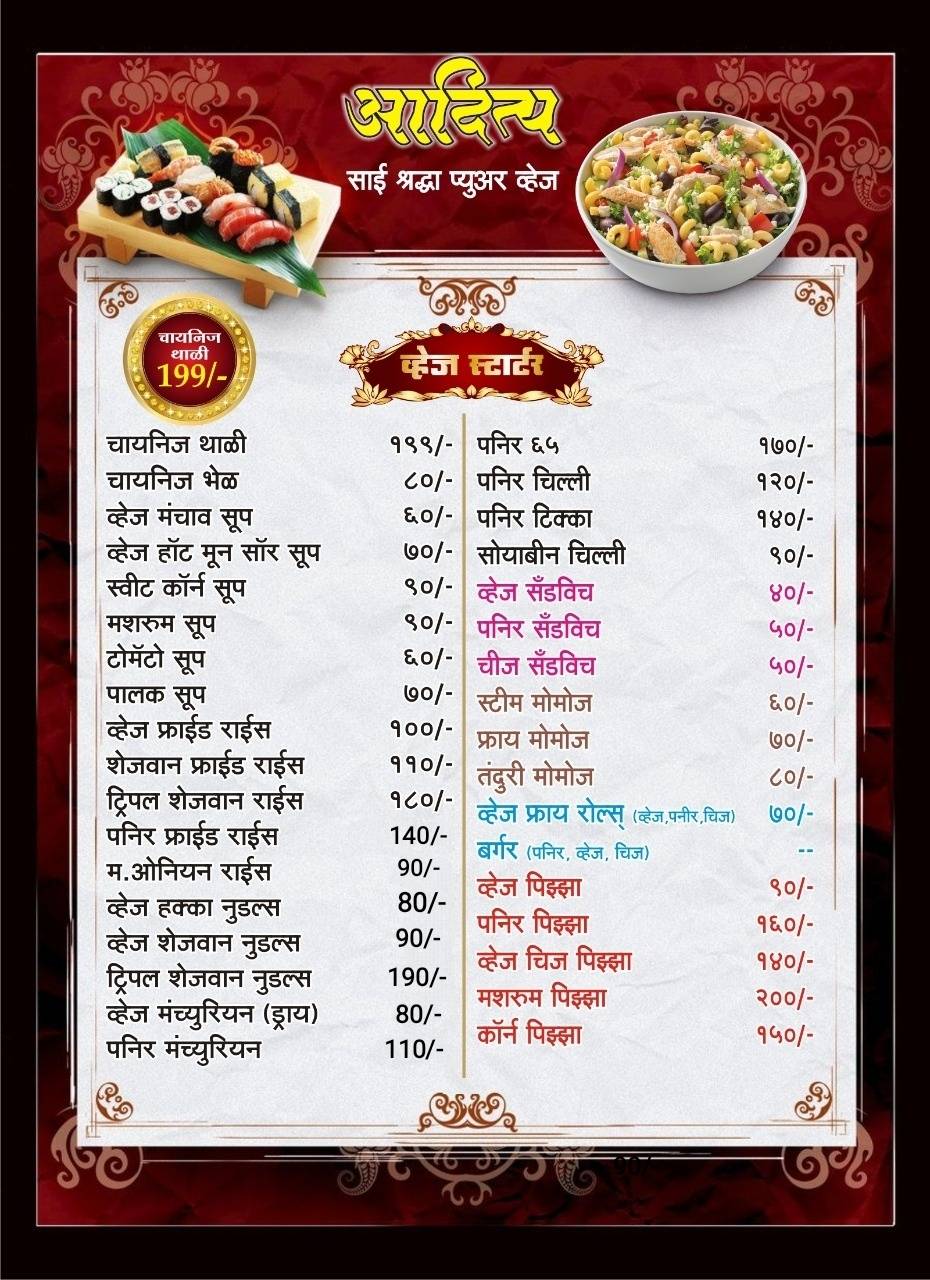 आदित्य
साई श्रद्धा प्युअर व्हेज
चायनिज
थाळी
199/-
व्हेज स्टार्टर
चायनिज थाळी १९९/-
चायनिज भेळ ८०/-
व्हेज मंचाव सूप ६०/-
व्हेज हॉट मून सॉर सूप ७०/-
स्वीट कॉर्न सूप ९०/-
मशरुम सूप ९०/-
टोमॅटो सूप ६०/-
पालक सूप ७०/-
व्हेज फ्राईड राईस १००/-
शेजवान फ्राईड राईस ११०/-
ट्रिपल शेजवान राईस १८०/-
पनिर फ्राईड राईस 140/-
म.ओनियन राईस 90/-
व्हेज हक्का नुडल्स 80/-
व्हेज शेजवान नुडल्स 90/-
ट्रिपल शेजवान नुडल्स 190/-
व्हेज मंच्युरियन (ड्राय) 80/-
पनिर मंच्युरियन 110/-
पनिर ६५ १७०/-
पनिर चिल्ली १२०/-
पनिर टिक्का १४०/-
सोयाबीन चिल्ली ९०/-
व्हेज सँडविच ४०/-
पनिर सँडविच ५०/-
चीज सँडविच ५०/-
स्टीम मोमोज ६०/-
फ्राय मोमोज ७०/-
तंदुरी मोमोज ८०/-
व्हेज फ्राय रोल्स् (व्हेज,पनीर,चिज) ७०/-
बर्गर (पनिर, व्हेज, चिज) --
व्हेज पिझ्झा ९०/-
पनिर पिझ्झा १६०/-
व्हेज चिज पिझ्झा १४०/-
मशरुम पिझ्झा २००/-
कॉर्न पिझ्झा १५०/-
90/-